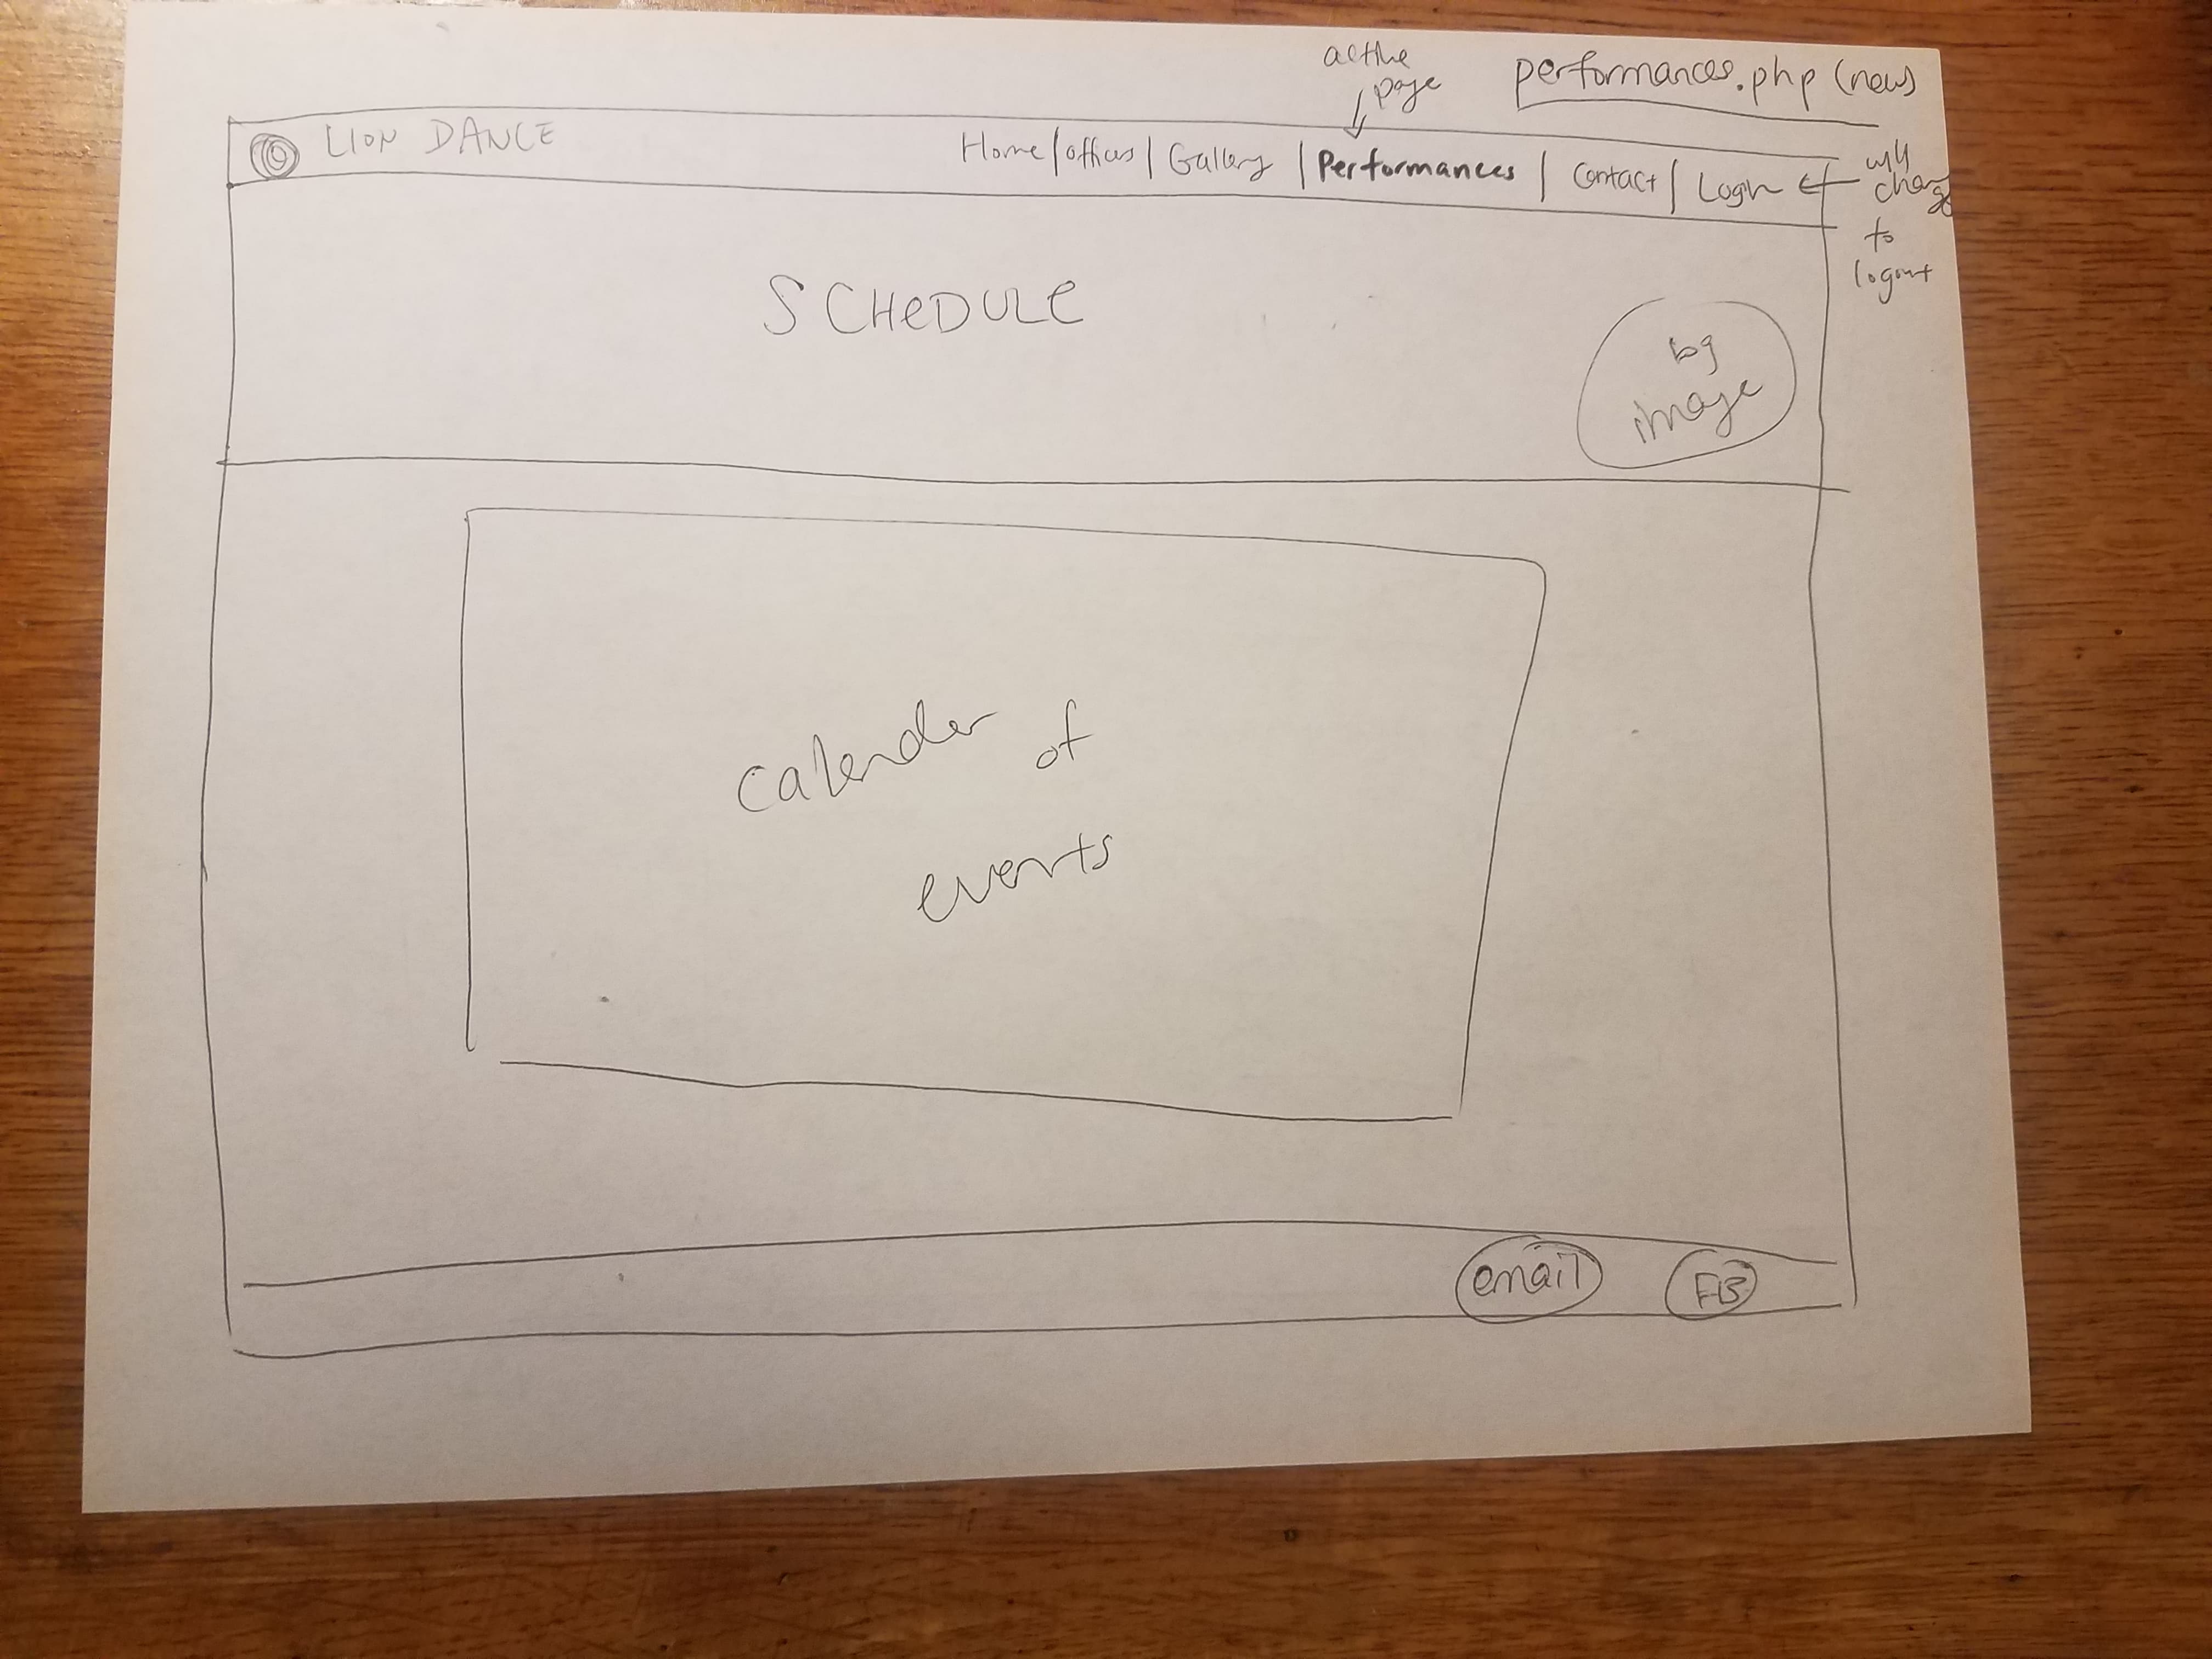 active
page
performances.php (new)
LION DANCE
Home | officers | Gallery | Performances | Contact | Login
will
change
to
logout
SCHEDULE
bg
image
calender of
events
email
FB